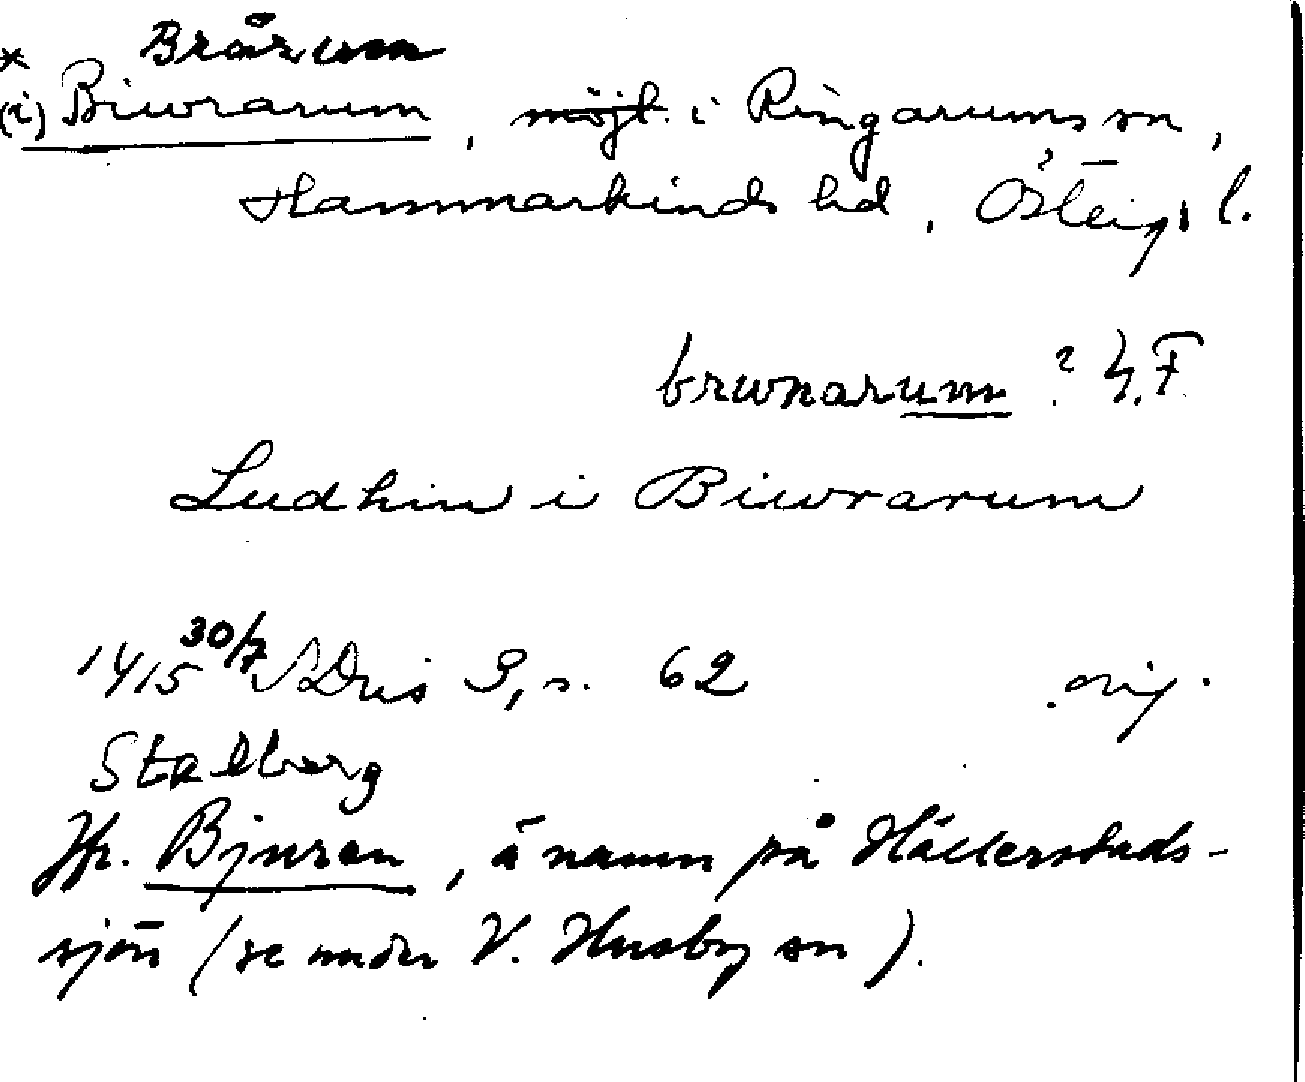 Brårum
* (i) Biwrarum, möjl. i Ringarums sn,
Hammarkinds hd, Östergl l.
brwnarum? G.F
Ludhin i Biwrarum
1415 30/7 SDns 3, s. 62 orig.
Stalberg
Jfr. Bjuren, ä namn på Hällerstads-
sjön (se under V. Husby sn).